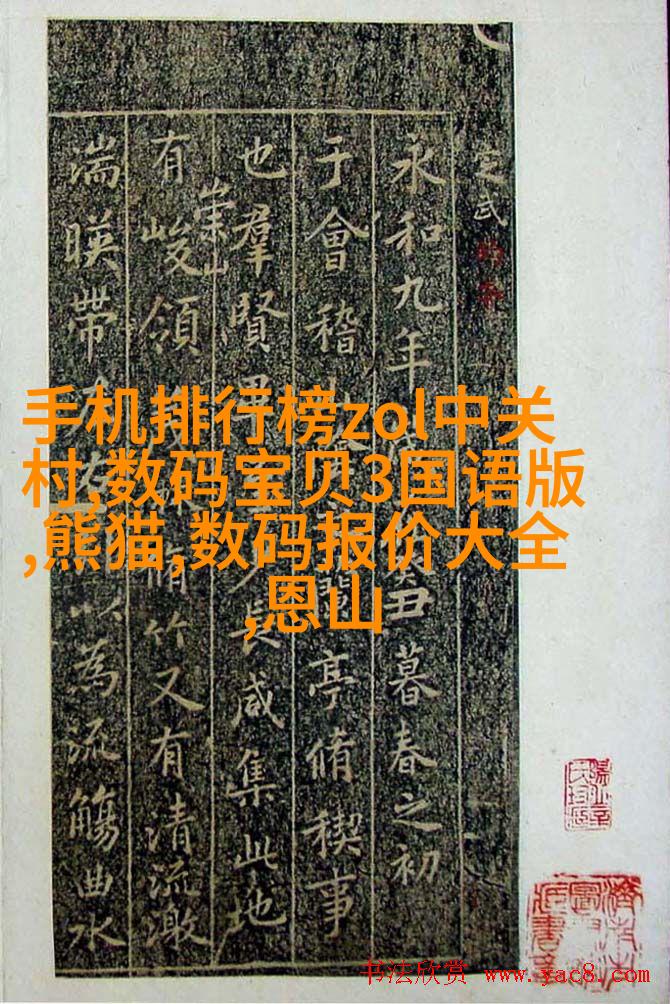 定武
永和九年 丑暮春之初
于會稽 蘭亭脩稧事
也羣賢畢 長咸集此地
有崇山峻領 脩竹又有清流激
湍暎帶左右 以為流觴曲水
手机排行榜zol中关
村,数码宝贝3国语版
,熊猫,数码报价大全
,恩山
书法欣赏 www.yac8.com